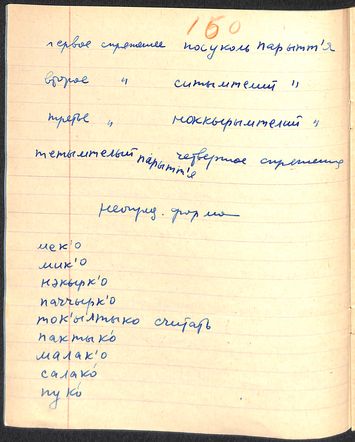 150
первое спряжение посуколь парытт'я
второе " ситымтелий "
третье " ноккырымтелий "
тетымтелый парытт'я четвертое спряжение
неопред. форма
мек'о
мик'о
нэкырк'о
паччырк'о
ток'ылтыко считать
пактыко
малак'о
салако
пуко